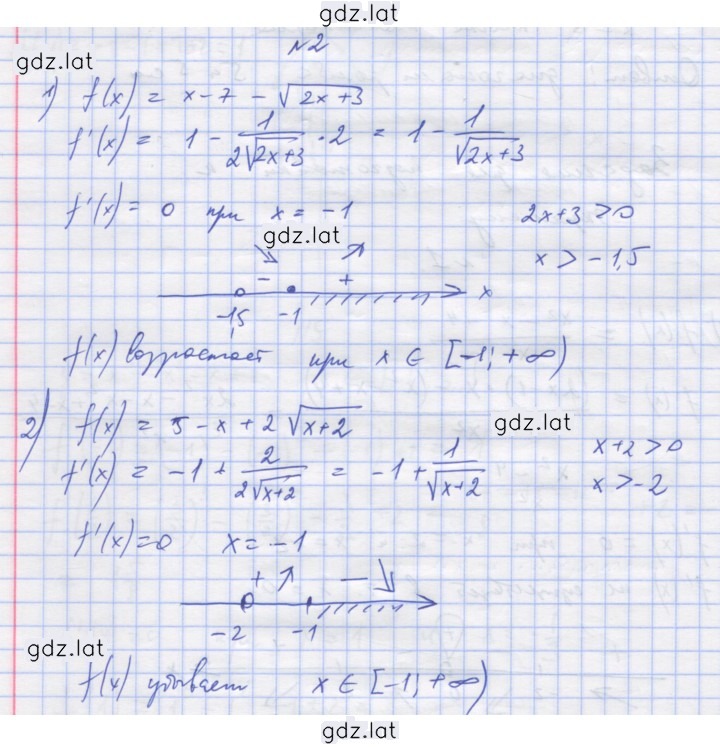 gdz.lat
№2
gdz.lat
1) f(x) = x-7 - √(2x+3)
f'(x) = 1 - 1/(2√(2x+3)) · 2 = 1 - 1/√(2x+3)
f'(x) = 0 при x = -1 2x+3 > 0
gdz.lat
x > -1,5
- +
x
-1,5 -1
f(x) возрастает при x ∈ [-1; +∞)
2) f(x) = 5 - x + 2√(x+2)
gdz.lat
x+2 > 0
f'(x) = -1 + 2/(2√(x+2)) = -1 + 1/√(x+2)
x > -2
f'(x) = 0 x = -1
+ -
-2 -1
gdz.lat
f(x) убывает x ∈ [-1; +∞)
gdz.lat